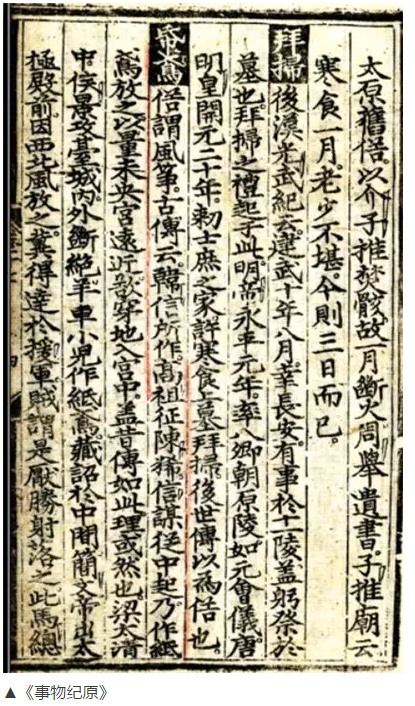 太原舊俗。以介子推焚骸。故一月斷火。周舉遺書。子推廟云
寒食一月。老少不堪。今則三日而已。
拜掃 後漢光武紀云。建武十年八月。幸長安。有事於十一陵。蓋躬祭於
墓也。拜掃之禮起于此。明帝永平元年。率公卿朝原陵。如元會儀。唐
明皇開元二十年。勑士庶之家。許寒食上墓拜掃。後世傳以為俗也。
帋鳶 俗謂風筝。古傳云。韓信所作。高祖征陳豨。信謀從中起。乃作紙
鳶放之。以量未央宮遠近。欲穿地入宮中。蓋昔傳如此。理或然也。梁太清
中。侯景攻臺城。內外斷絕。羊車小兒作紙鳶。藏詔於中。開簡文帝出太
極殿前。因西北風放之。冀得達於援軍。賊謂是厭勝。射落之。此馬總
▲《事物纪原》